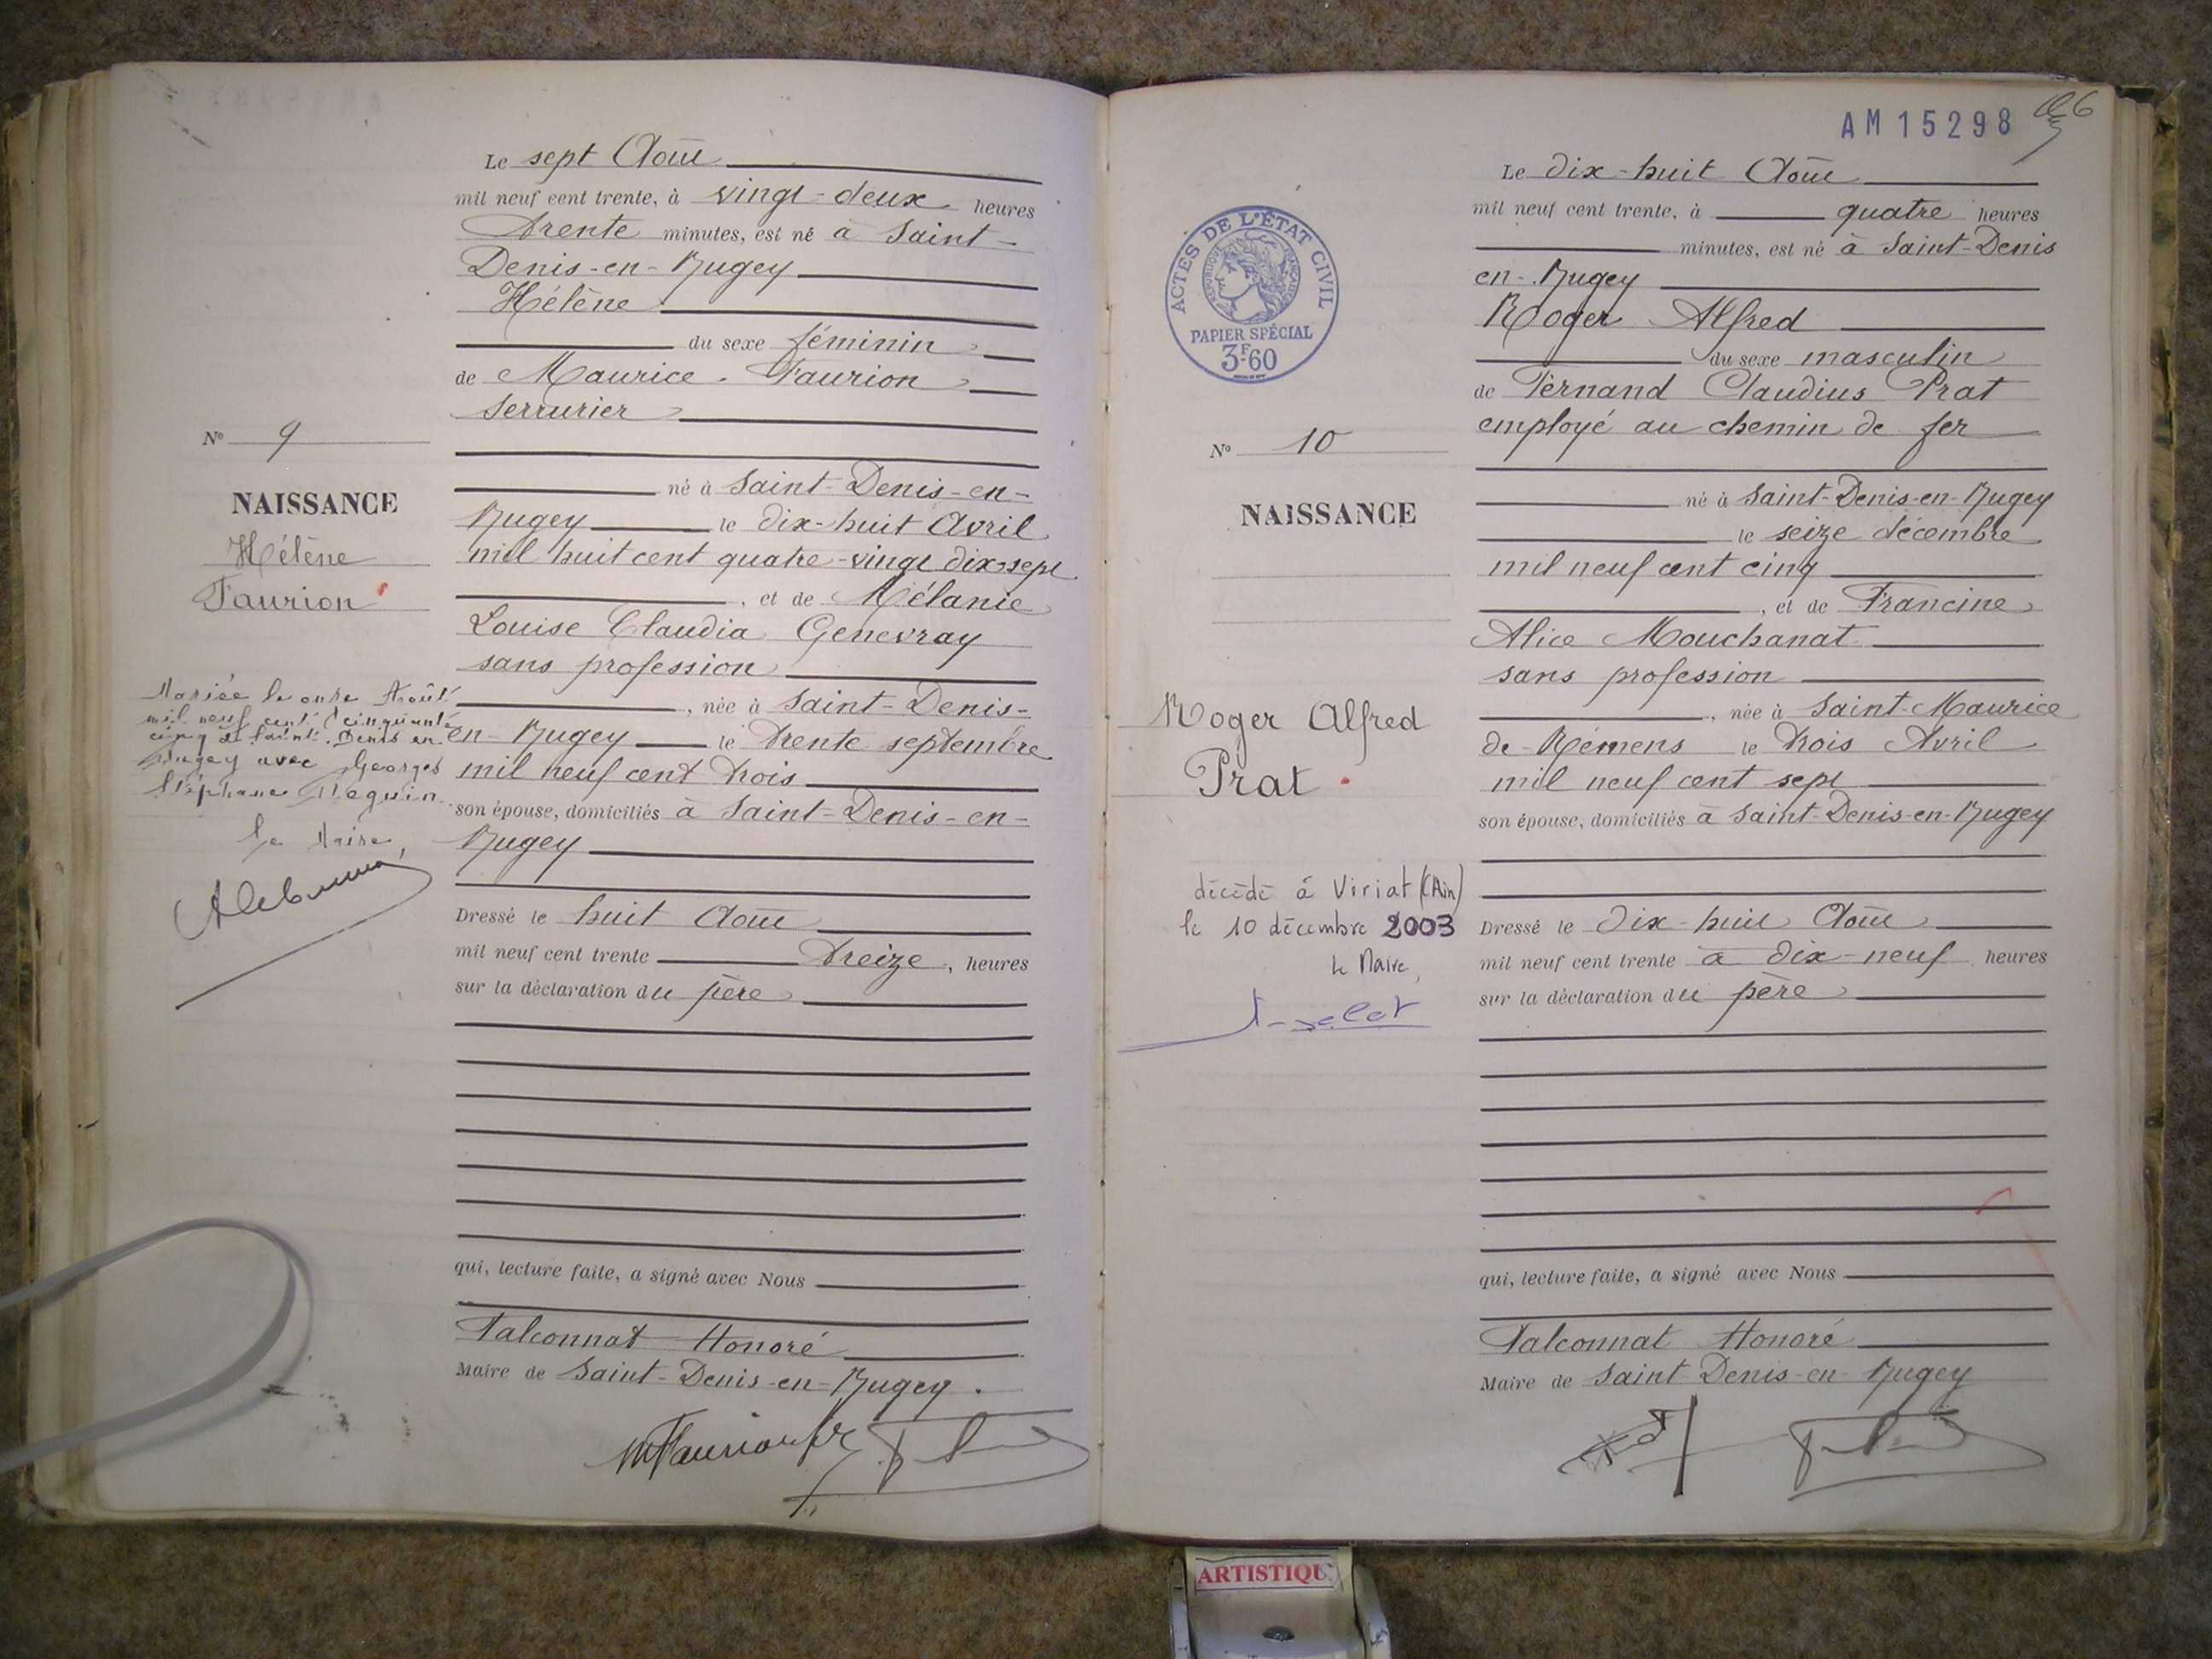 Le sept Août
mil neuf cent trente, à vingt-deux heures
trente minutes, est né à Saint-
Denis-en-Bugey
Hélène
du sexe féminin
de Maurice Faurion
serrurier
né à Saint-Denis-en-
Bugey le dix-huit Avril
mil huit cent quatre-vingt dix-sept
, et de Mélanie
Louise Claudia Genevray
sans profession
, née à Saint-Denis-
en-Bugey le trente septembre
mil neuf cent trois
son épouse, domiciliés à Saint-Denis-en-
Bugey
Dressé le huit Août
mil neuf cent trente treize, heures
sur la déclaration du père
qui, lecture faite, a signé avec Nous
Falconnat Honoré
Maire de Saint-Denis-en-Bugey.
MFaurion
N° 9
NAISSANCE
Hélène
Faurion
Mariée le onze Août
mil neuf cent cinquante
cinq à Saint-Denis en
Bugey avec Georges
Stéphane
Le Maire,
AM 15298
6
ACTES DE L'ÉTAT CIVIL
RÉPUBLIQUE FRANÇAISE
PAPIER SPÉCIAL
3F60
Le dix-huit Août
mil neuf cent trente, à quatre heures
minutes, est né à Saint-Denis
en-Bugey
Roger Alfred
du sexe masculin
de Fernand Claudius Prat
employé au chemin de fer
né à Saint-Denis-en-Bugey
le seize décembre
mil neuf cent cinq
, et de Francine
Alice Mouchanat
sans profession
, née à Saint-Maurice
de-Rémens le trois Avril
mil neuf cent sept
son épouse, domiciliés à Saint-Denis-en-Bugey
Dressé le dix-huit Août
mil neuf cent trente à dix-neuf heures
sur la déclaration du père
qui, lecture faite, a signé avec Nous
Falconnat Honoré
Maire de Saint-Denis-en-Bugey
N° 10
NAISSANCE
Roger Alfred
Prat
décédé à Viriat (Ain)
le 10 décembre 2003
le Maire,
ARTISTIQU